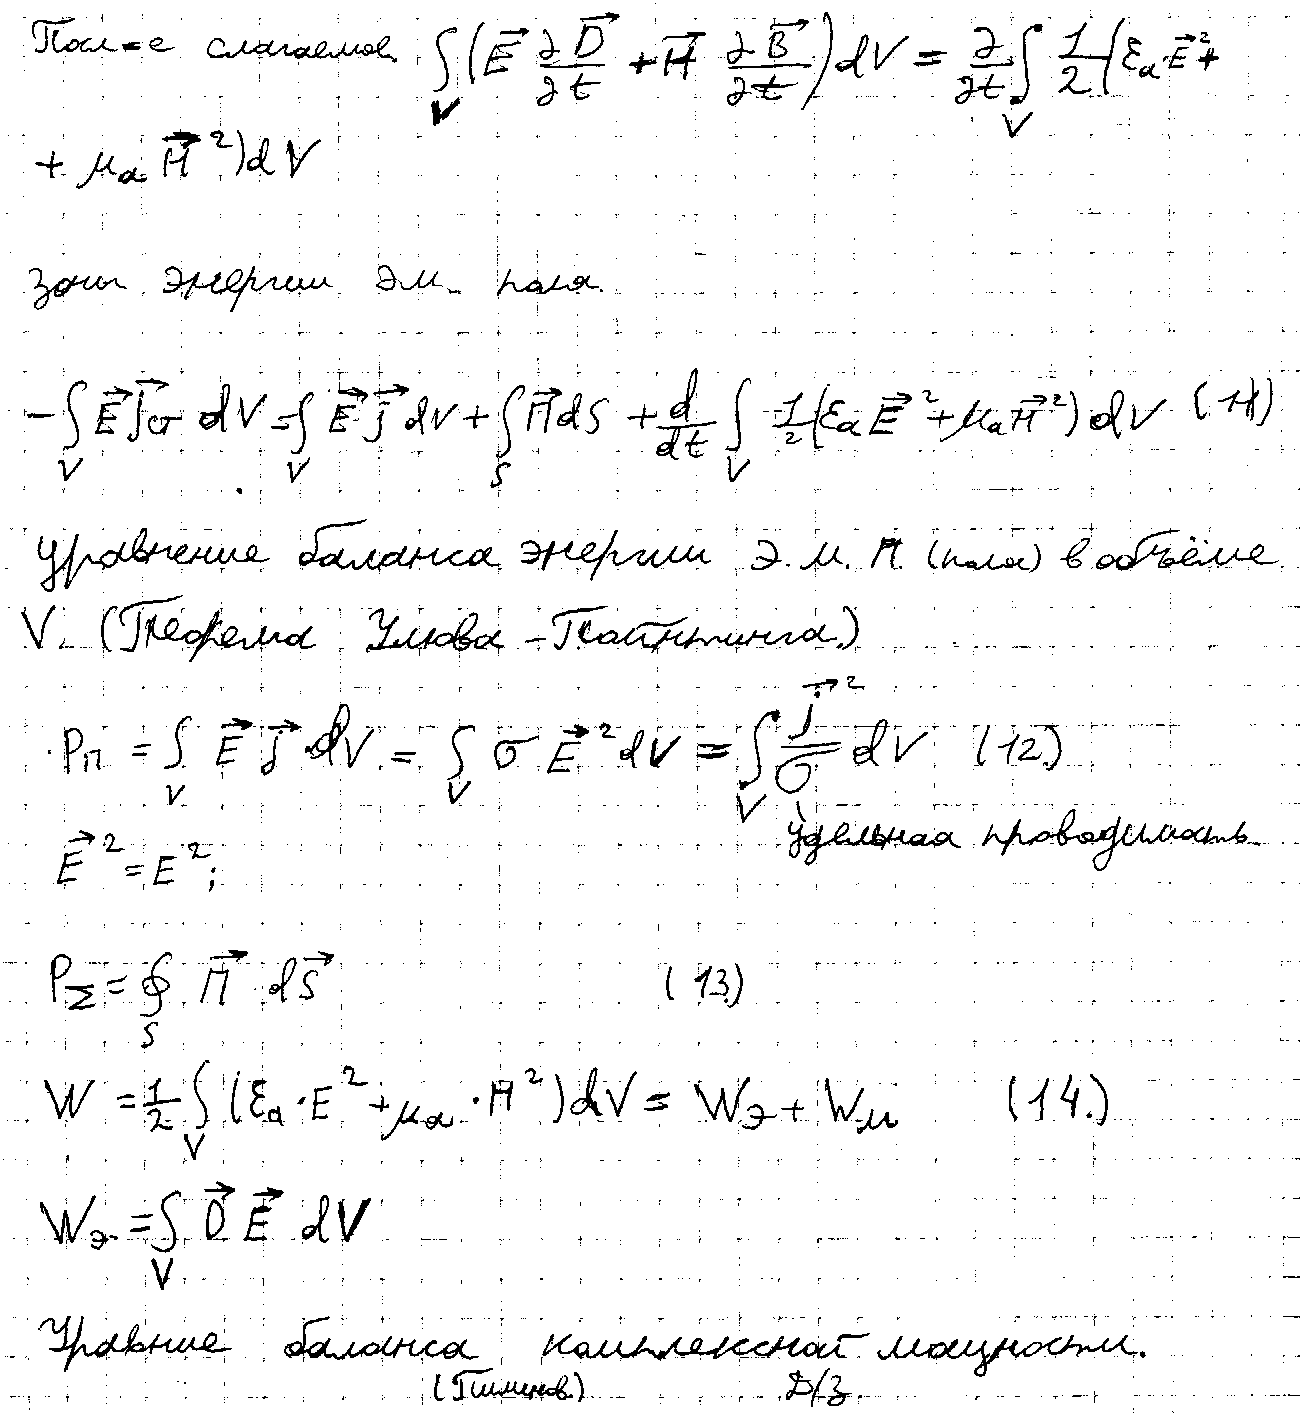 Посл-е слагаемое ∫_V (E⃗ ∂D⃗/∂t + H⃗ ∂B⃗/∂t) dV = ∂/∂t ∫_V 1/2 (ε_a · E⃗² +
+ μ_a H⃗²) dV
энергии эм. поля.
- ∫_V E⃗ j⃗_σ dV = ∫_V E⃗ j⃗ dV + ∫_S П⃗ dS + d/dt ∫_V 1/2 (ε_a E⃗² + μ_a H⃗²) dV (11)
Уравнение баланса энергии э.м. П. (поля) в объёме
V. (Теорема Умова - Пойнтинга.)
P_п = ∫_V E⃗ j⃗ dV = ∫_V σ E⃗² dV = ∫_V j⃗²/σ dV (12.)
удельная проводимость.
E⃗² = E²;
P_Σ = ∮_S П⃗ dS⃗ (13.)
W = 1/2 ∫_V (ε_a · E² + μ_a · H²) dV = W_э + W_м (14.)
W_э = ∫_V D⃗ E⃗ dV
Уравние баланса комплексной мощности.
Д/З.